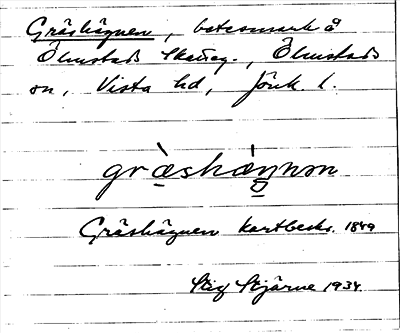 Gräshägnen, betesmark å
Ölmstads skatteg., Ölmstads
sn, Vista hd, Jönk. l.
græshæŋnən
Gräshägnen kartbeskr. 1849
Stig Stjärne 1934